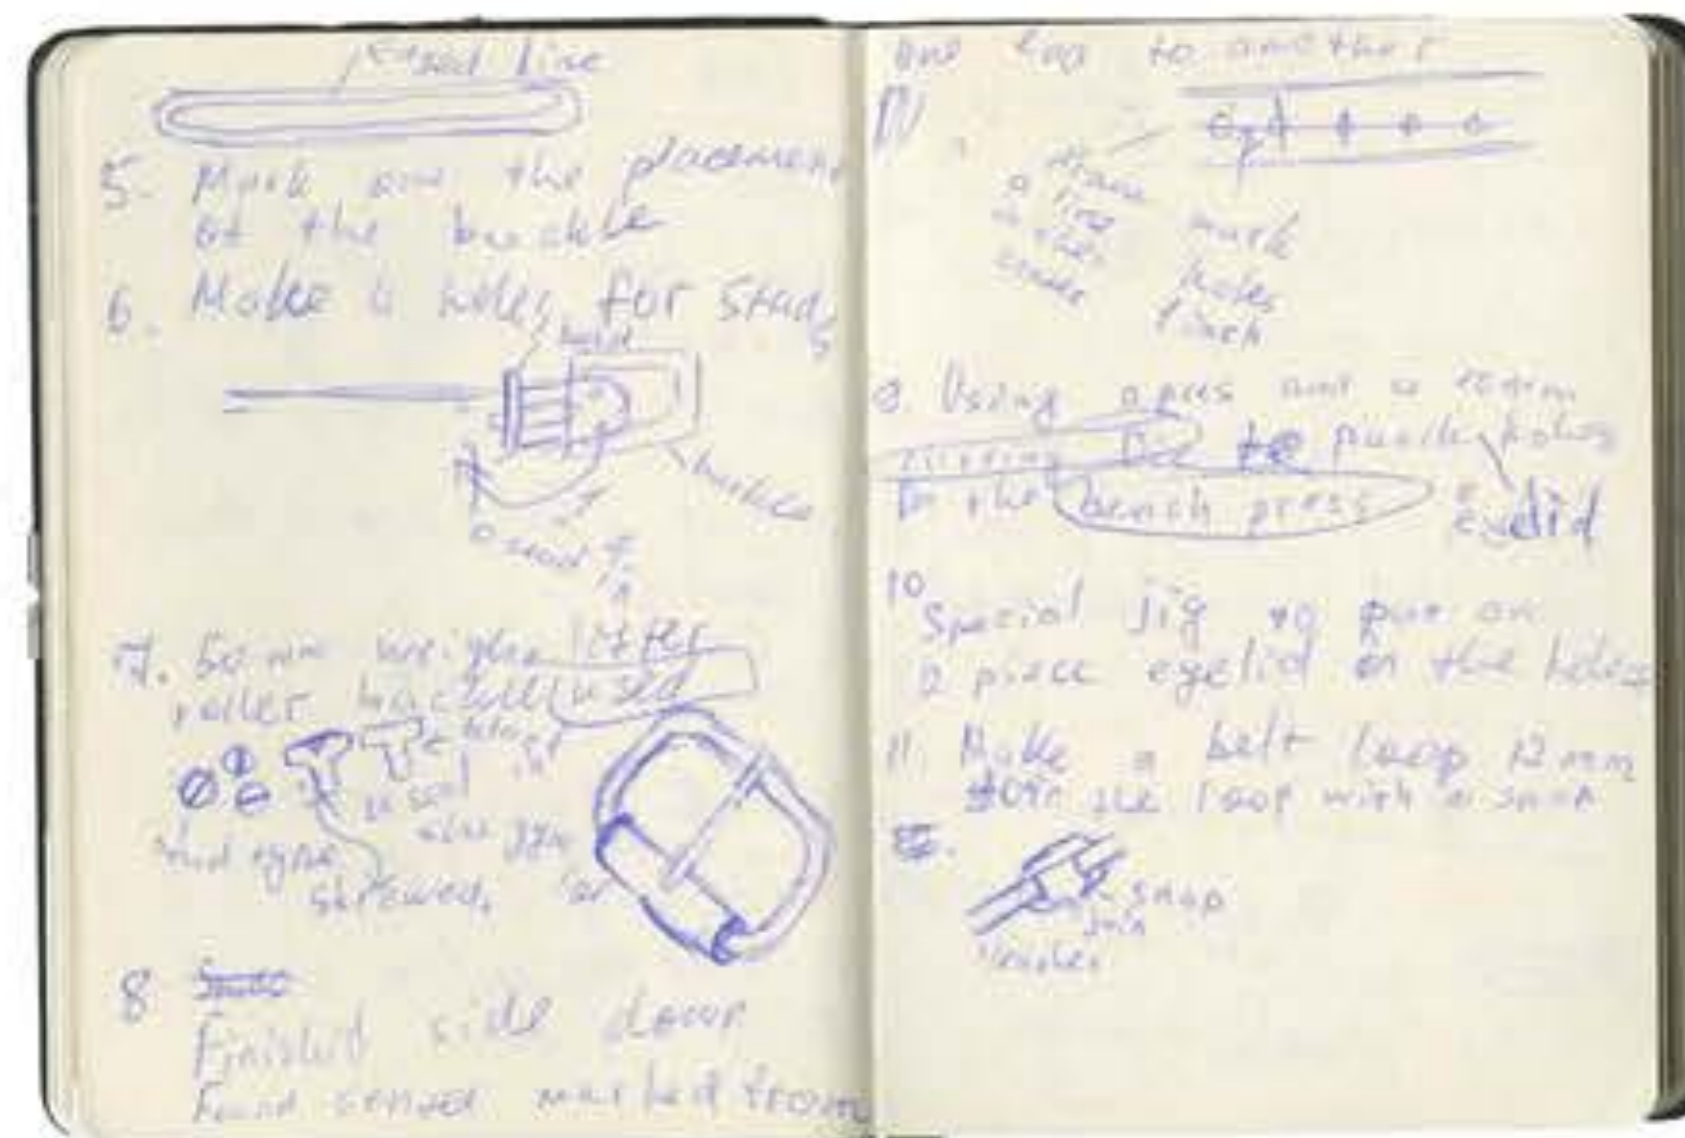 line
5. Mark out the placement
of the buckle
6. Make 6 holes for Stud
s
bend
buckle
stud
7. 50 mm weight lifter
roller buckle used
stud type
screwed, or
8
Finished side down
Found center marked from
one end to another
Draw
a line
mark
holes
1 inch
9. Using a press and a 10 mm
Die to punch holes
In the bench press
Eyelid
10 Special Jig to put on
2 piece eyelid on the holes
11. Make a belt loop 12 mm
Join the loop with a snap
snap
Join
leather